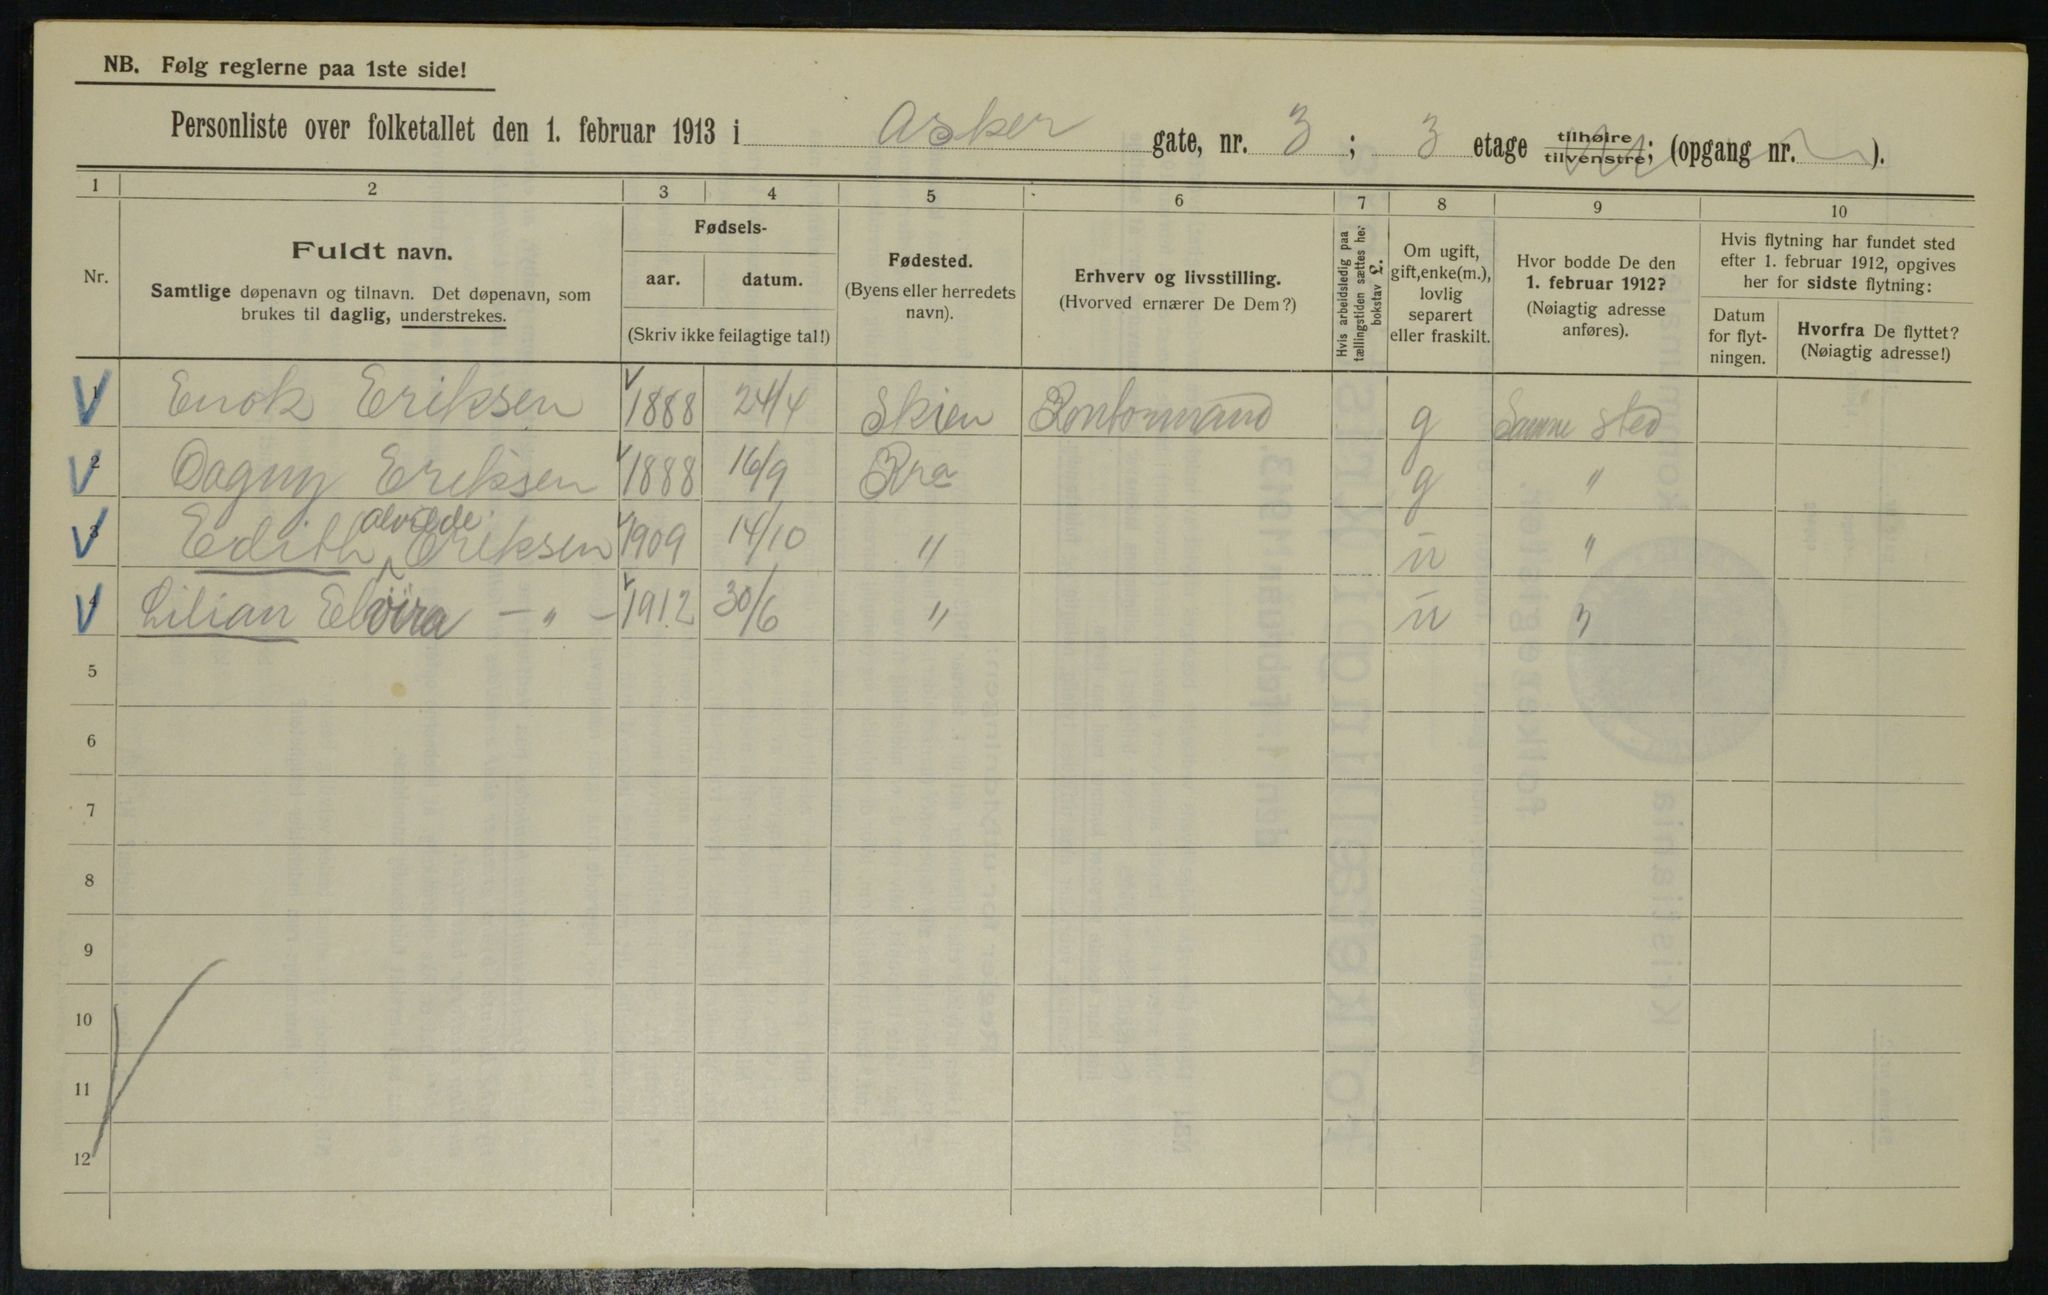 NB. Følg reglerne paa 1ste side!
Personliste over folketallet den 1. februar 1913 i Asker gate, nr. 3 ; 3 etage tilhøire tilvenstre; (opgang nr. ).
1 2 3 4 5 6 7 8 9 10
Nr.
Fuldt navn.
Samtlige døpenavn og tilnavn. Det døpenavn, som
brukes til daglig, understrekes.
Fødsels-
aar. datum.
(Skriv ikke feilagtige tal!)
Fødested.
(Byens eller herredets
navn).
Erhverv og livsstilling.
(Hvorved ernærer De Dem?)
Hvis arbeidsledig paa
tællingstiden sættes her
bokstav L.
Om ugift,
gift, enke(m.),
lovlig
separert
eller fraskilt.
Hvor bodde De den
1. februar 1912?
(Nøiagtig adresse
anføres).
Hvis flytning har fundet sted
efter 1. februar 1912, opgives
her for sidste flytning:
Datum
for flyt-
ningen.
Hvorfra De flyttet?
(Nøiagtig adresse!)
1 Enok Eriksen 1888 24/4 Skien Kontormand g Samme sted
2 Dagny Eriksen 1888 16/9 Kra g "
3 Edith Alvilde Eriksen 1909 14/10 " u "
4 Lilian Elvira — " — 1912 30/6 " u "
5
6
7
8
9
10
11
12